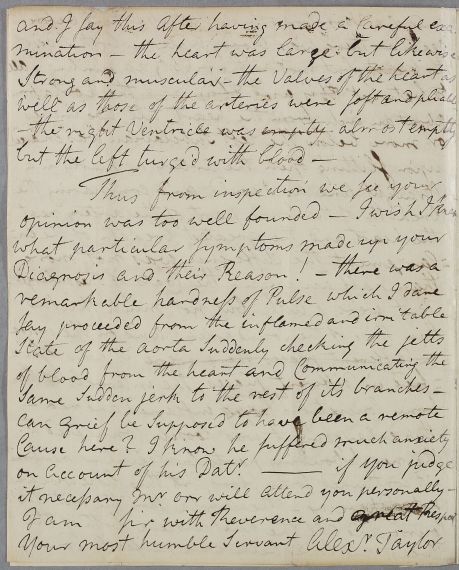 and I say this after having made a Careful exa
mination – the heart was large but likewise
Strong and muscular – the Valves of the heart as
well as those of the arteries were soft and pliable
– the right Ventricle was empty almost empty
but the left turged with blood –
Thus from inspection we see your
opinion was too well founded – I wish I knew
what particular Symptoms made up your
Diagnosis and their Reason! – there was a
remarkable hardness of Pulse which I dare
say proceeded from the inflamed and irritable
State of the aorta Suddenly checking the jetts
of blood from the heart and Communicating the
Same Sudden jerk to the rest of its branches –
can grief be Supposed to have been a remote
Cause here? I know he suffered much anxiety
on account of his Datr. —— if you judge
it necessary Mr orr will attend you personally –
I am Sir with Reverence and great Respect
Your most humble Servant Alexr. Taylor